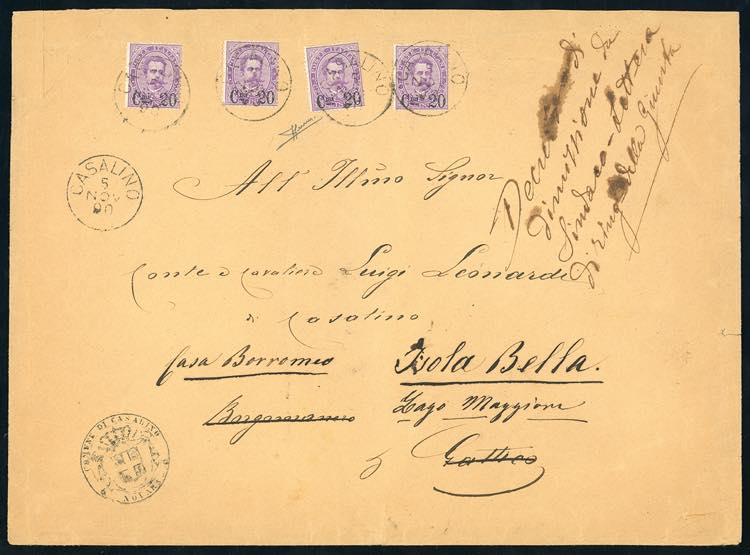 POSTE ITALIANE
Cmi 20
Cmi 20
Cmi 20
Cmi 20
CASALINO
CASALINO
5
NOV
90
Decreto di
dimissione da
Sindaco - lettera
di ring. della Giunta
All' Illmo Signor
Conte e Cavaliere Luigi Leonardi
di Casalino
Casa Borromeo Isola Bella.
Borgomanero Lago Maggiore
p Gattico
COMUNE DI CASALINO
NOVARA